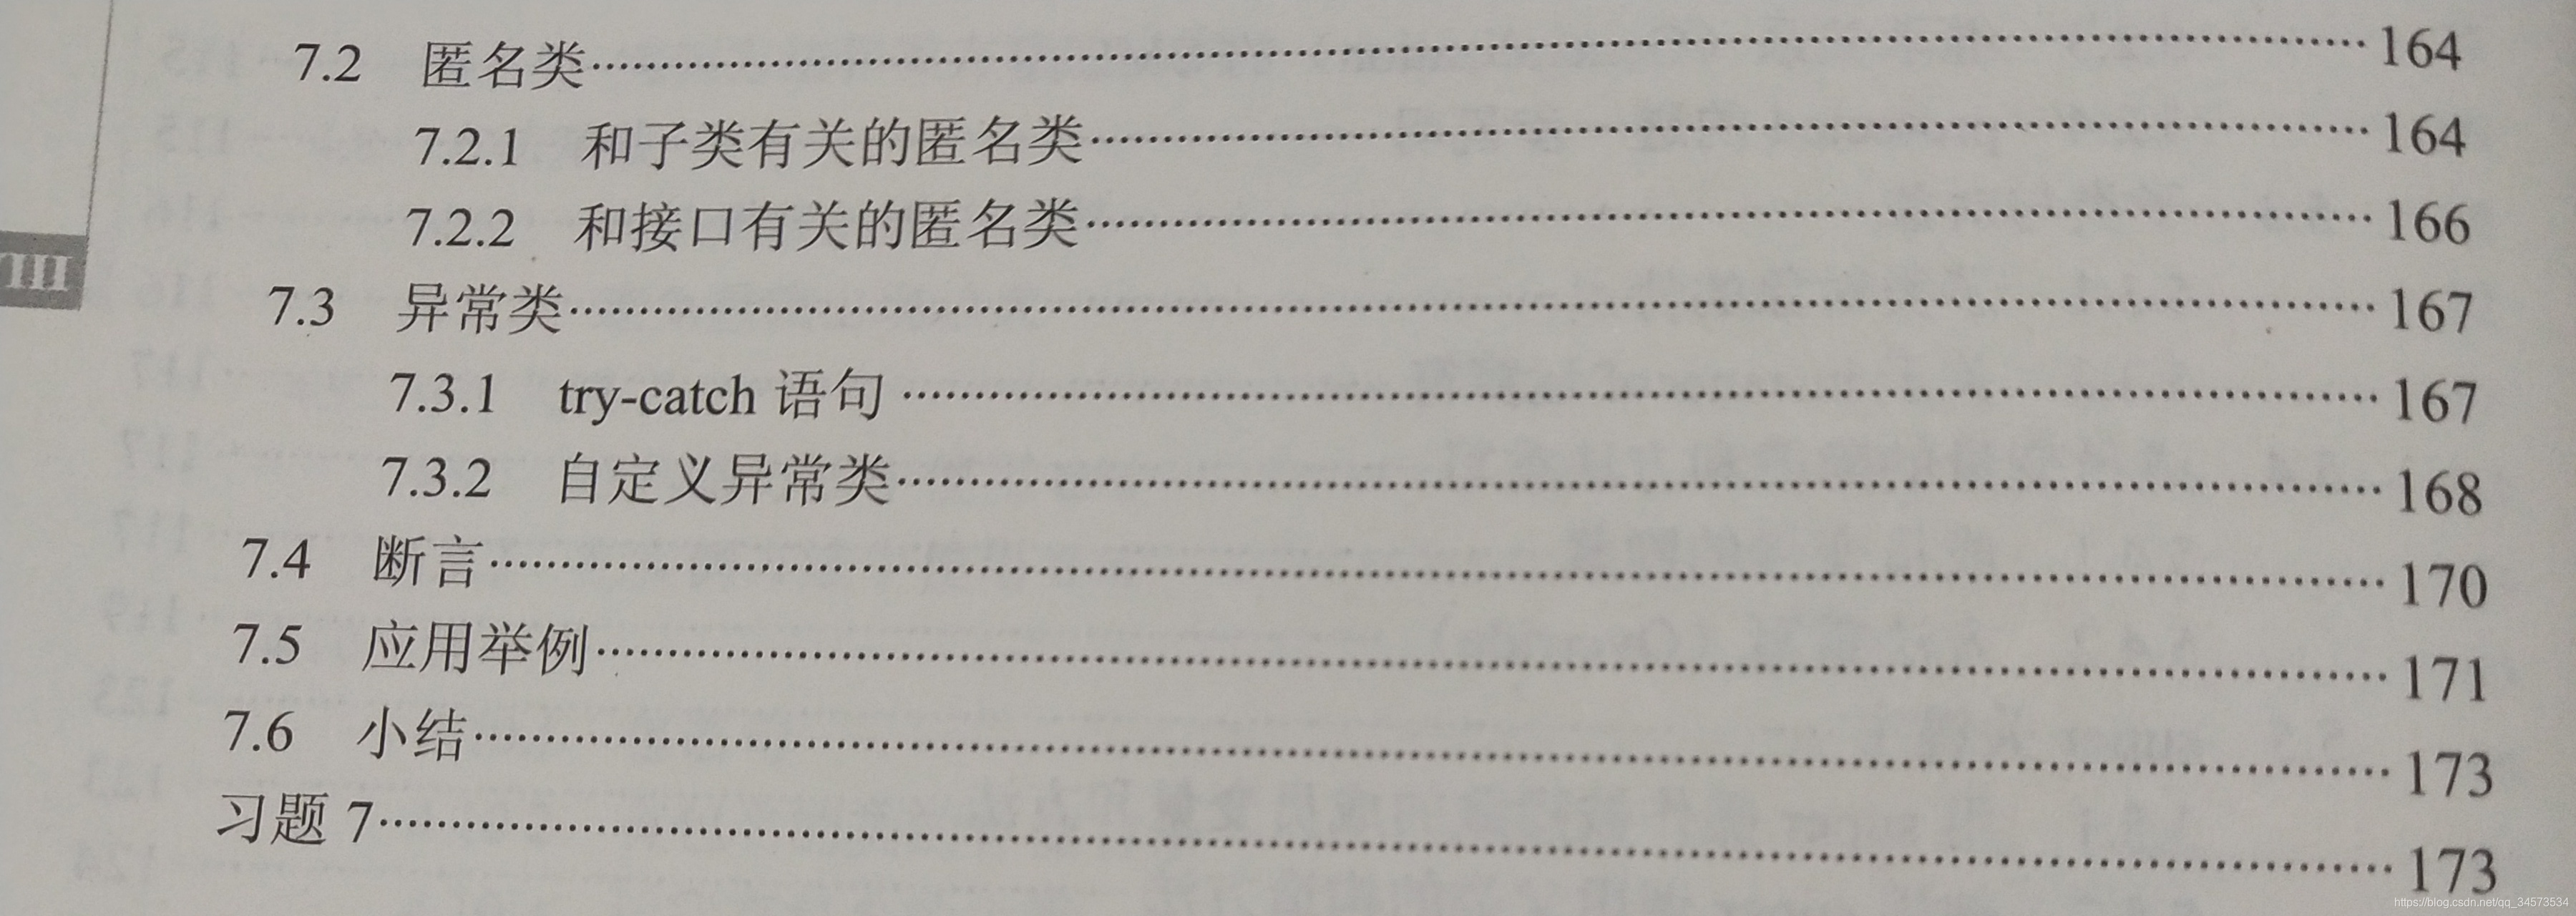 7.2 匿名类……164
7.2.1 和子类有关的匿名类……164
7.2.2 和接口有关的匿名类……166
7.3 异常类……167
7.3.1 try-catch 语句……167
7.3.2 自定义异常类……168
7.4 断言……170
7.5 应用举例……171
7.6 小结……173
习题 7……173
https://blog.csdn.net/qq_34573534